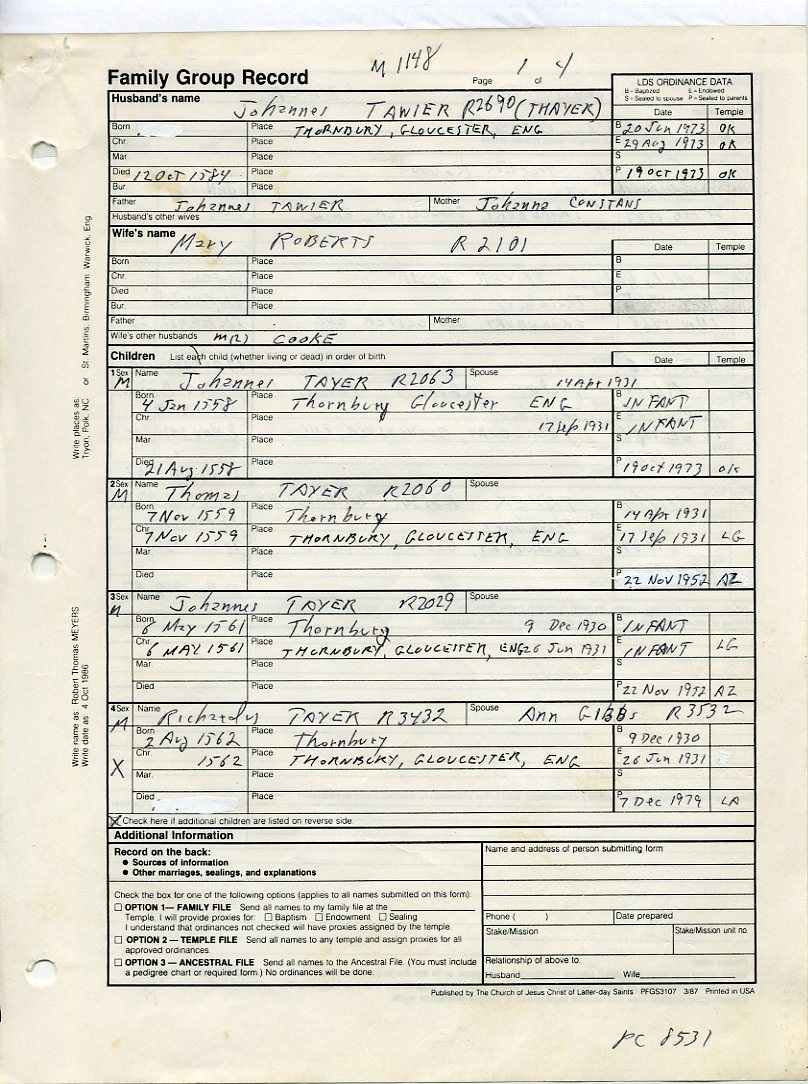 M 1148
Family Group Record
Page 1 of 4
LDS ORDINANCE DATA
B - Baptized E - Endowed
S - Sealed to spouse P - Sealed to parents
Husband's name
Johannes TAWIER R2690 (THAYER)
Date Temple
Born Place THORNBURY, GLOUCESTER, ENG B 20 Jun 1973 OK
Chr. Place E 29 Aug 1973 OK
Mar Place S
Died 12 Oct 1584 Place P 19 Oct 1973 OK
Bur. Place
Father Johannes TAWIER Mother Johanna CONSTANS
Husband's other wives
Wife's name
Mary ROBERTS R 2101
Date Temple
Born Place B
Chr. Place E
Died Place P
Bur. Place
Father Mother
Wife's other husbands MR) COOKE
Children List each child (whether living or dead) in order of birth
Date Temple
1 Sex M Name Johannes TAYER R2063 Spouse 14 Apr 1931
Born 4 Jan 1558 Place Thornbury Gloucester ENG B INFANT
Chr. Place 17 Sep 1931 E INFANT
Mar. Place S
Died 21 Aug 1558 Place P 19 Oct 1973 OK
2 Sex M Name Thomas TAYER R2060 Spouse
Born 7 Nov 1559 Place Thornbury B 14 Apr 1931
Chr. 7 Nov 1559 Place THORNBURY, GLOUCESTER, ENG E 17 Sep 1931 LG
Mar. Place S
Died Place P 22 Nov 1952 AZ
3 Sex M Name Johannes TAYER R2029 Spouse
Born 6 May 1561 Place Thornbury 9 Dec 1930 B INFANT
Chr. 6 MAY 1561 Place THORNBURY, GLOUCESTER, ENG 26 Jun 1931 E INFANT LG
Mar. Place S
Died Place P 22 Nov 1952 AZ
4 Sex M Name TAYER R3432 Spouse Ann GIBBS R3532
Born 2 Aug 1562 Place Thornbury B 9 Dec 1930
X Chr. 1562 Place THORNBURY, GLOUCESTER, ENG E 26 Jun 1931
Mar. Place S
Died Place P 7 Dec 1979 LA
X Check here if additional children are listed on reverse side.
Additional Information
Record on the back:
• Sources of information
• Other marriages, sealings, and explanations
Name and address of person submitting form
Check the box for one of the following options (applies to all names submitted on this form).
☐ OPTION 1— FAMILY FILE Send all names to my family file at the
Temple. I will provide proxies for: ☐ Baptism ☐ Endowment ☐ Sealing
I understand that ordinances not checked will have proxies assigned by the temple.
☐ OPTION 2 — TEMPLE FILE Send all names to any temple and assign proxies for all
approved ordinances.
☐ OPTION 3 — ANCESTRAL FILE Send all names to the Ancestral File. (You must include
a pedigree chart or required form.) No ordinances will be done.
Phone ( ) Date prepared
Stake/Mission Stake/Mission unit no.
Relationship of above to:
Husband Wife
Published by The Church of Jesus Christ of Latter-day Saints PFGS3107 3/87 Printed in USA
PC 8531
Write places as: Tryon, Polk, NC or St. Martins, Birmingham, Warwick, Eng
Write name as: Robert Thomas MEYERS
Write date as: 4 Oct 1986